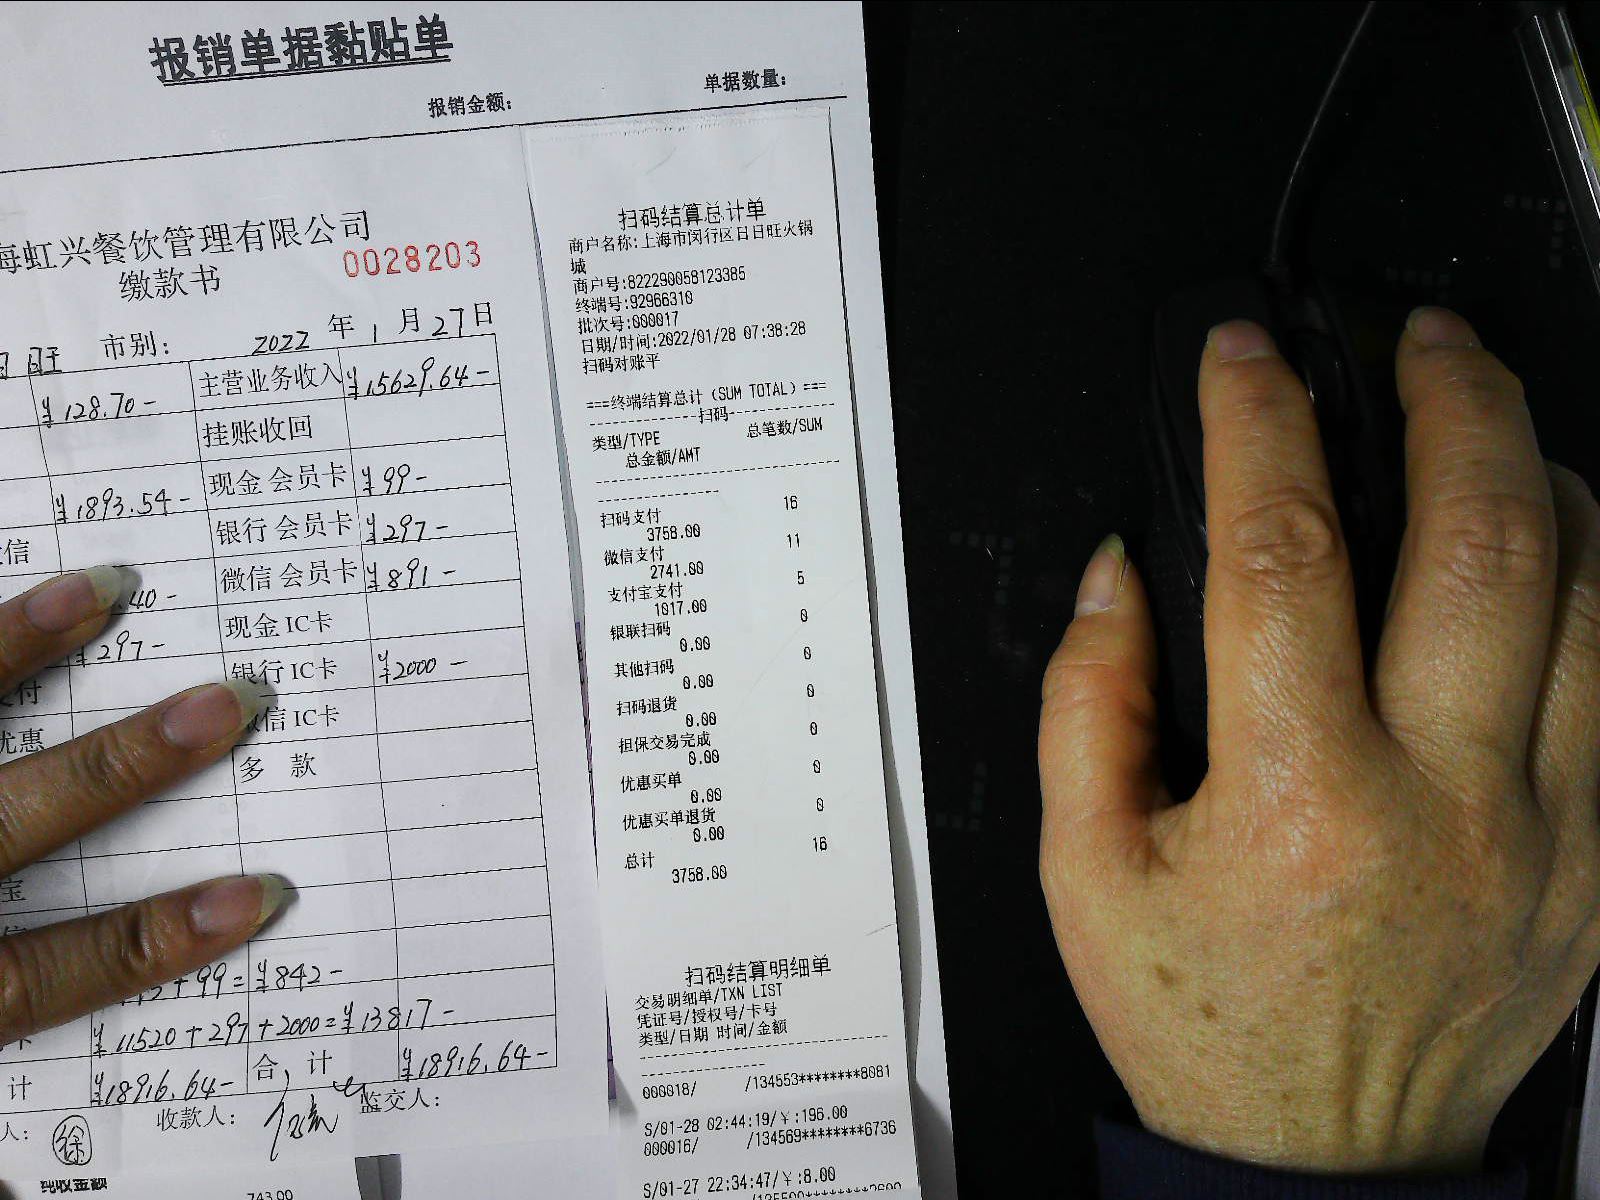 报销单据黏贴单
报销金额:
单据数量:
海虹兴餐饮管理有限公司
缴款书
0028203
市别:
2022 年 1 月 27 日
¥128.70-
主营业务收入 ¥15629.64-
挂账收回
¥1893.54-
现金 会员卡 ¥99-
信
银行 会员卡 ¥297-
.40-
微信 会员卡 ¥891-
¥297-
现金 IC卡
付
银行 IC卡 ¥2000-
优惠
信 IC卡
多 款
宝
+99= ¥842-
¥11520+297+2000=¥13817-
计 ¥18916.64-
合 计 ¥18916.64-
人: 徐
收款人:
监交人:
纯收金额
743.00
扫码结算总计单
商户名称:上海市闵行区日日旺火锅
城
商户号:822290058123385
终端号:92966310
批次号:000017
日期/时间:2022/01/28 07:38:28
扫码对账平
===终端结算总计 (SUM TOTAL) ===
----------------扫码----------------
类型/TYPE 总笔数/SUM
总金额/AMT
扫码支付 16
3758.00
微信支付 11
2741.00
支付宝支付 5
1017.00
银联扫码 0
0.00
其他扫码 0
0.00
扫码退货 0
0.00
担保交易完成 0
0.00
优惠买单 0
0.00
优惠买单退货 0
0.00
总计 16
3758.00
扫码结算明细单
交易明细单/TXN LIST
凭证号/授权号/卡号
类型/日期 时间/金额
000018/ /134553********8081
S/01-28 02:44:19/¥:196.00
000016/ /134569********6736
S/01-27 22:34:47/¥:8.00